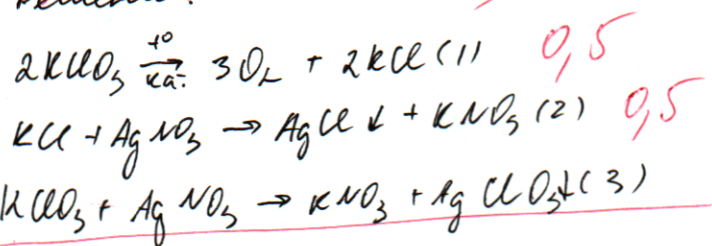 2KClO₃ →(t°, кат.) 3O₂ + 2KCl (1) 0,5
KCl + AgNO₃ → AgCl↓ + KNO₃ (2) 0,5
KClO₃ + AgNO₃ → KNO₃ + AgClO₃↓ (3)